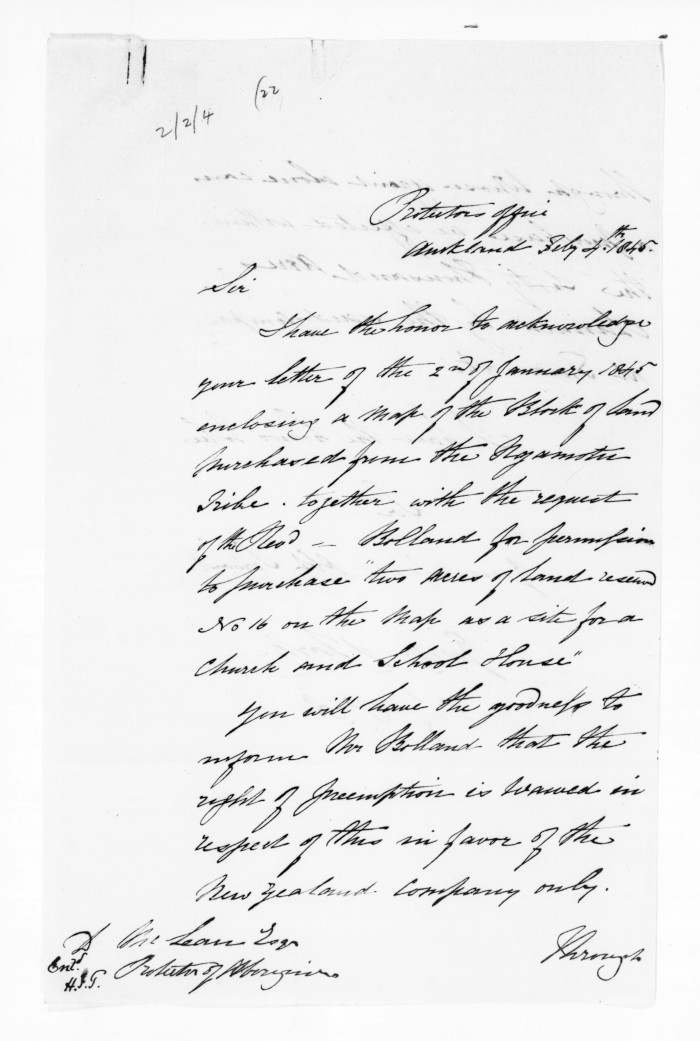 (22
2/2/4
Protectors office
Auckland Feby 4th 1845.
Sir
I have the honor to acknowledge
your letter of the 2nd of January 1845
enclosing a map of the Block of Land
purchased from the Ngamotu
Tribe. together with the request
of the Revd — Bolland for permission
to purchase "two acres of Land reserved
No 16 on the map as a site for a
Church and School House"
You will have the goodness to
inform Mr Bolland that the
right of preemption is waived in
respect of this in favor of the
New Zealand Company only.
D McLean Esqr
Protector of Aborigines
Entd
H.J.T.
Through